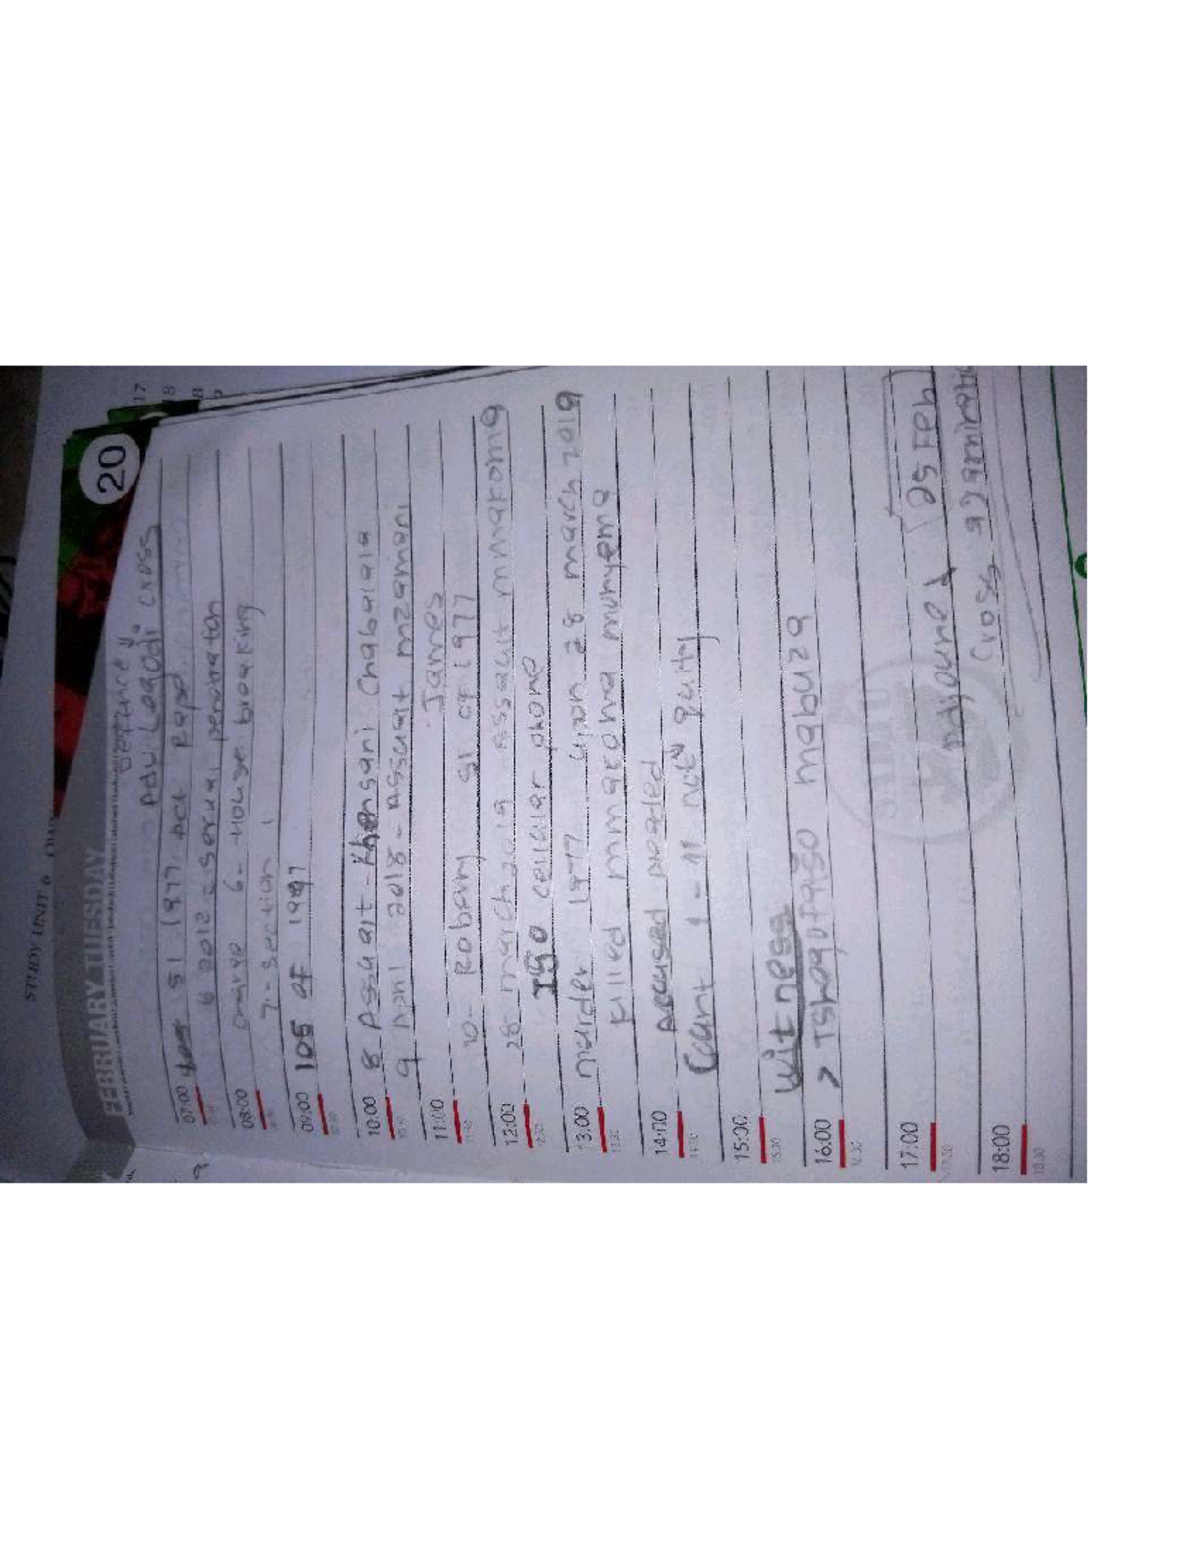 STUDY UNIT 6
FEBRUARY TUESDAY 20
17
18
Defence
Adv. Leagadi cross
07:00 51 1977 Act Rape
2012 - sexual penetration
08:00 charge 6 - House breaking
7 - section 1
09:00 105 of 1997
10:00 8 Assault - Khensani Chabalala
9 April 2018 - Assault mzamani
11:00 James
10 - Robbery 51 of 1977
12:00 28 march 2019 Assault mmakoma
ISO cellular phone
13:00 murder 1977 upon 28 march 2019
killed - mmatohna munyema
14:00 Accused pleaded
Count 1 - 11 "not" guilty
15:00
15:30
Witness
16:00 > Tshogofatso mabuza
17:00 25 Feb
Adjourned
18:00 Cross examination
18:30